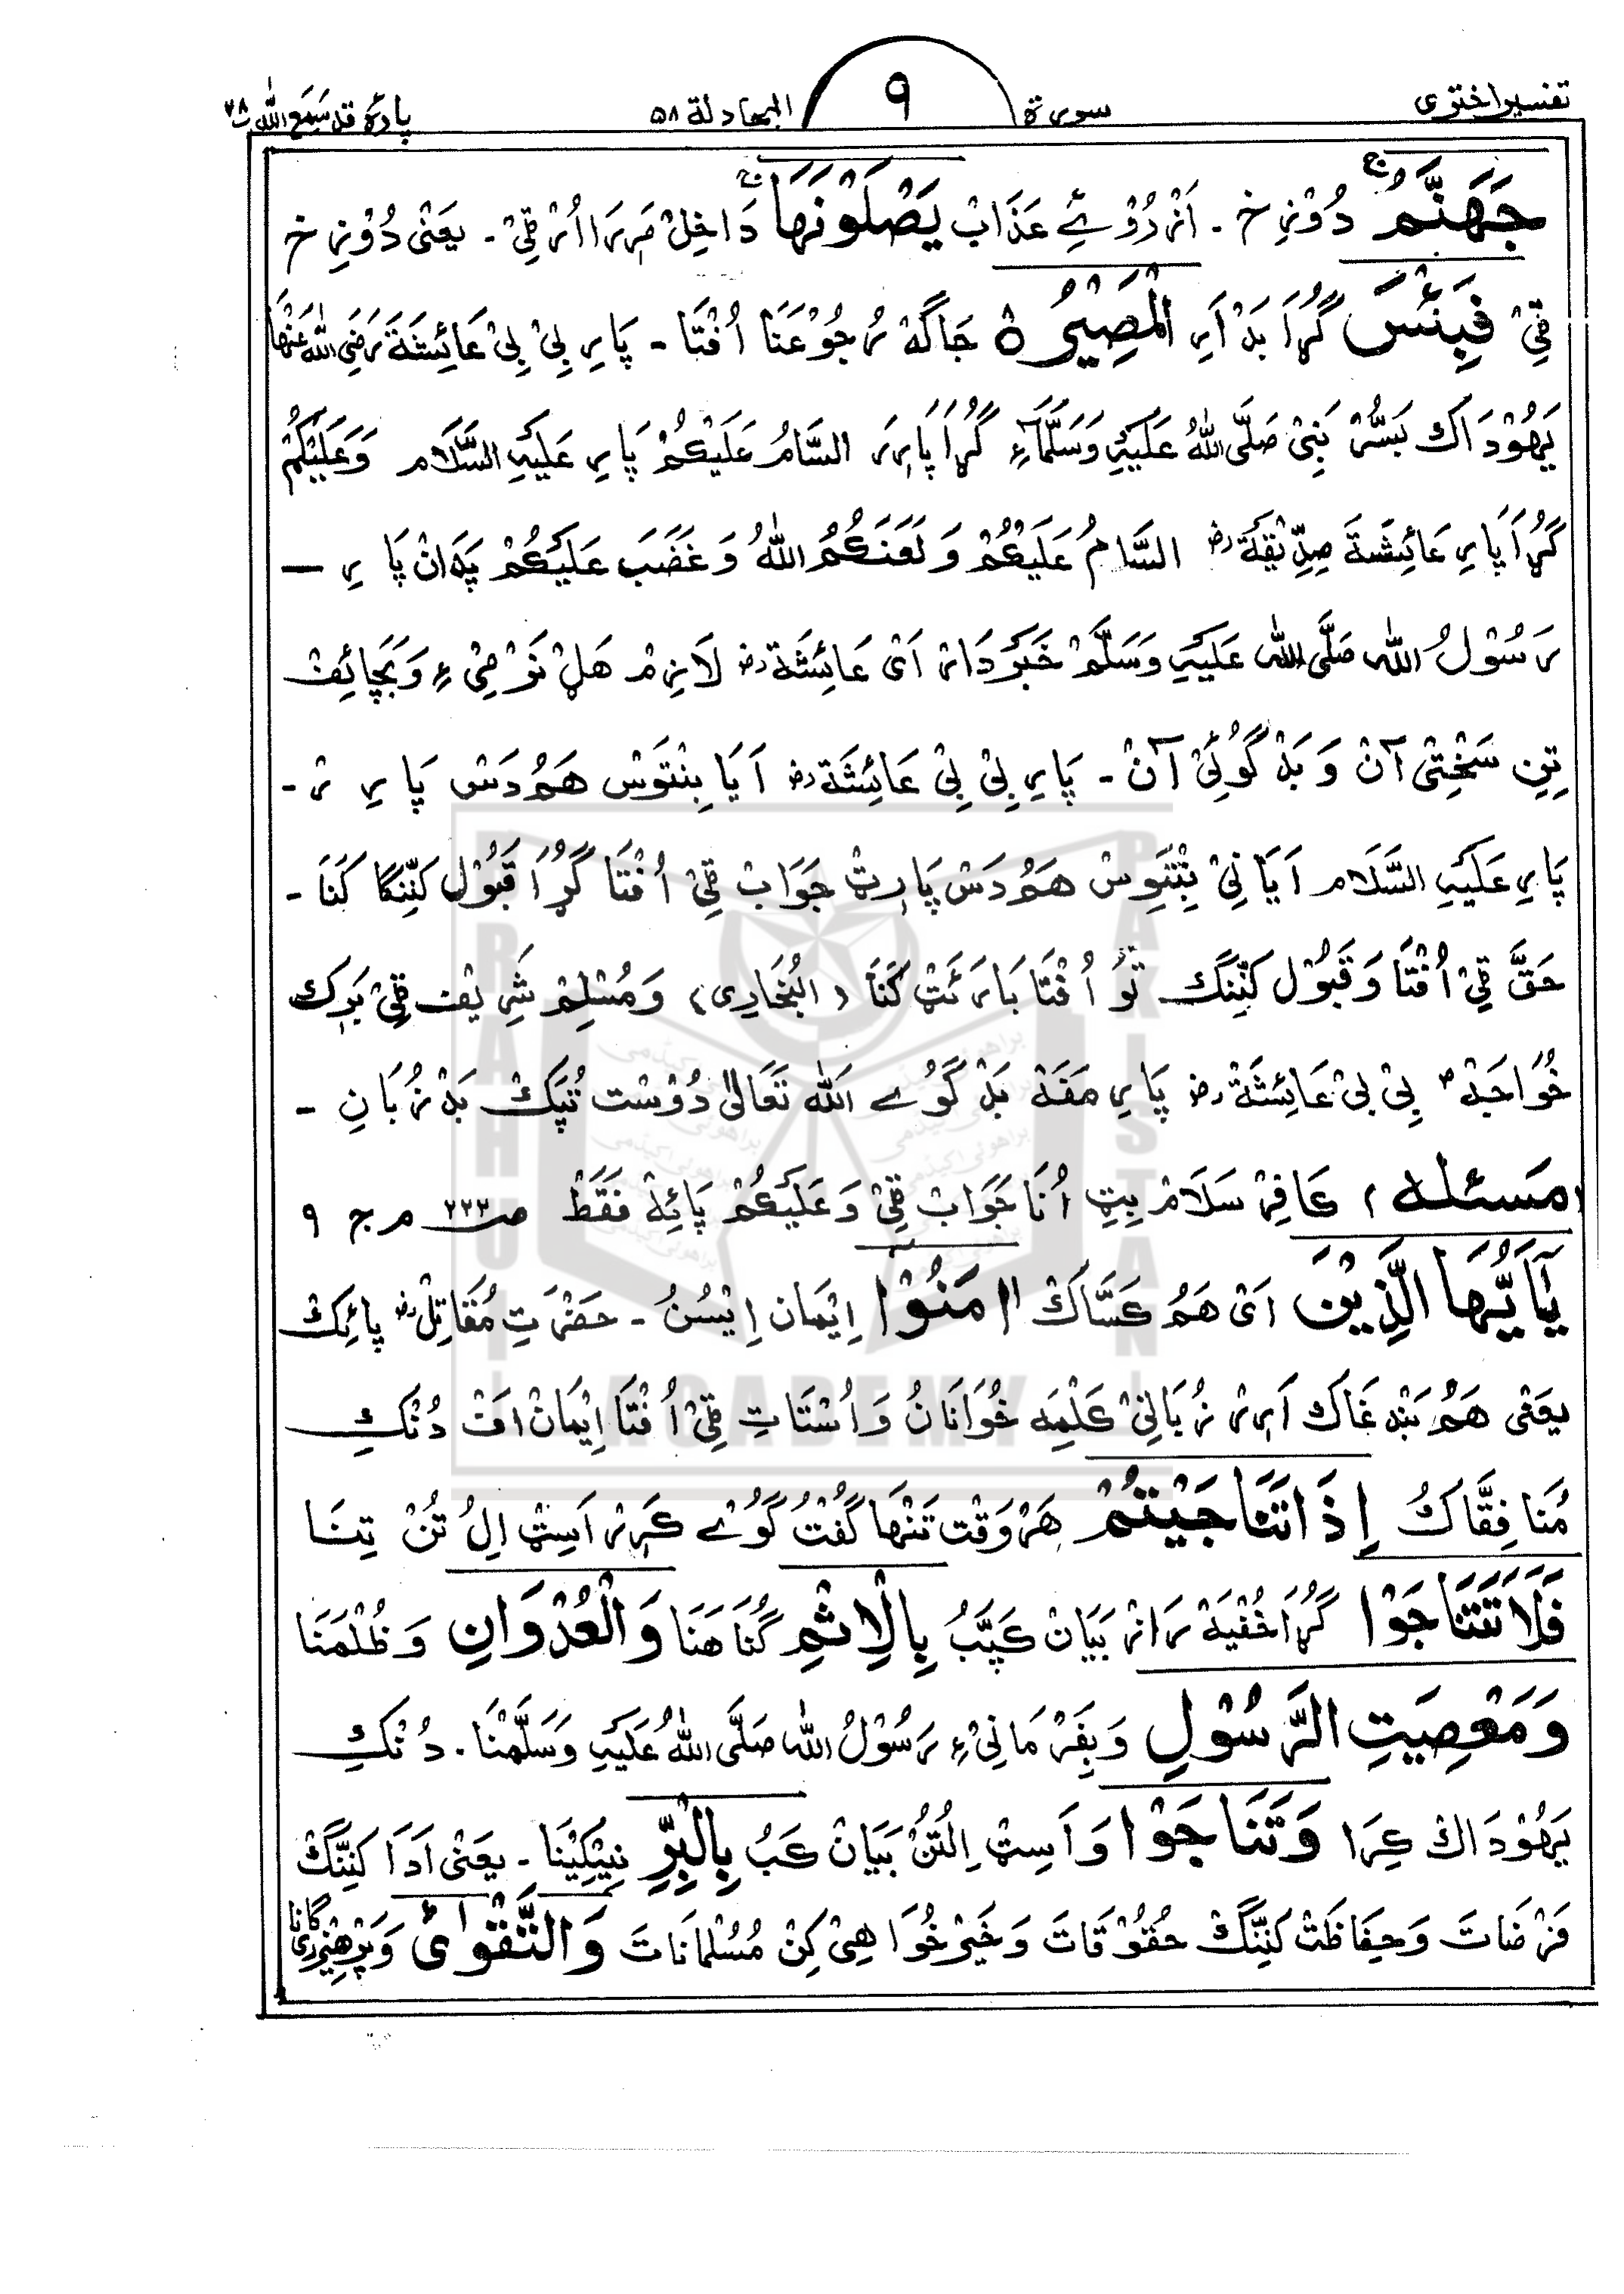 تفسیر اختری
سورة ٩ المجادلة ٥٨
پارۀ قد سَمِعَ الله ٢٨
جَهَنَّمُ دُوْزِخ ۔ اَنْ رُوْئے عَذَابْ يَصْلَوْنَهَا دَاخِلْ مَرِرَ ااُرْ قِیْ ۔ یَعْنٰی دُوْزِخ
قِیْ فَبِئْسَ گُڑَا بَدْ اَرِ الْمَصِيْرُ ٥ جَاگَهْ رُجُوْعَنَا اُفْتَا ۔ پَارِ بِیْ بِیْ عَائِشَةَ رَضِیَ اللهُ عَنْهَا
یَهُوْدَاک بَسُّرْ نَبِیْ صَلَّی اللهُ عَلَیْهِ وَسَلَّمَاءِ گُڑَا پَارِرَ السَّامُ عَلَیْکُمْ پَارِ عَلَیْهِ السَّلَام وَعَلَیْکُمْ
گُڑَا پَارِ عَائِشَةَ صِدِّیْقَةَ رض السَّامُ عَلَیْکُمْ وَ لَعَنَکُمُ اللهُ وَ غَضَبَ عَلَیْکُمْ پَدَانْ پَا رِ —
رَسُوْلُ الله صَلَّی الله عَلَیْهِ وَسَلَّمْ خَبَرْدَارْ اَیْ عَائِشَة رض لَازِمْ هَلْ نَرْمِیْ ءِ وَ بَچائِفْ
تِنِ سَخْتِیْ آنْ وَ بَدْ گُوْئِیْ آنْ ۔ پَارِ بِیْ بِیْ عَائِشَة رض اَیَا بِنْتَوْسْ هَمُ دَسْ پَا رِ رْ ۔
پَارِ عَلَیْهِ السَّلَام اَیَا نِیْ بِنْتَوِسْ هَمُ دَسْ پَارِٹ جَوَابْ قِیْ اُفْتَا گُڑَا قَبُوْل کَنِّنْگا کَنَا ۔
حَقَّ قِیْ اُفْتَا وَ قَبُوْل کَنِّنگ تَوْ اُفْتَا بَارَئَتْ کَنَا (البُخَارِی) وَ مُسْلِمْ شَرِیْف قِیْ بَرِک
خُوَاجَهْ بِیْ بِیْ عَائِشَةْ رض پَارِ مَفَهْ بَدْ گَوُے اَلله تَعَالٰی دُوْسْت تُپِکْ بَدْ زُبَانِ ۔
(مَسئله) کَافِرْ سَلَامْ بِتِ اُنَا جَوَابْ قِیْ وَعَلَیْکُمْ پَائِهْ فَقَطْ صـ ٢٢٣ م ج ٩
يٰٓاَيُّهَا الَّذِيْنَ اَیْ هَمُ کَسَّاکْ اٰمَنُوْا اِیْمَان اِیْسُنُ ۔ حَضْرَتِ مُقَاتِلْ رض پائِکْ
یَعْنٰی هَمُ بَنْدَ غَاک اَرِرْ زُبَانِیْ کَلْمِه خُوَانَانُ وَ اُسْتَاتِ قِیْ اُفْتَا اِیْمَانْ اَفْ دُنْکِ
مُنَافِقَّاکُ اِذَا تَنَاجَيْتُمْ هَرْوَقْت تَنْهَا گُفْتُ گُوْے کَرِرْ اَسِٹ اِلُ تُنْ تِنَا
فَلَا تَتَنَاجَوْا گُڑَا خُفْیَهْ رَازْ بَیَانْ کَپَّبُ بِالْاِثْمِ گُنَاهَنَا وَالْعُدْوَانِ وَ ظُلْمَنَا
وَمَعْصِيَتِ الرَّسُوْلِ وَ بِفَرْمَانِیْ ءِ رَسُوْلُ الله صَلَّی اللهُ عَلَیْهِ وَسَلَّمْنَا ۔ دُنْکِ
یَهُوْدَاکْ کِرَا وَتَنَاجَوْا وَ اَسِٹ اِلْتُنْ بَیَانْ کَبُ بِالْبِرِّ نِیْکِیْنَا ۔ یَعْنٰی اَدَا کَنِنَّگْ
فَرْضَاتَ وَ حِفَاظَتْ کَنِنَّگْ حُقُوْقَاتَ وَ خَیْرْخُوَاهِیْ کِنْ مُسْلمَانَاتَ وَالتَّقْوٰى وَ پَرْهِیْزگَارِیْ نَا
BRAHUI ACADEMY PAKISTAN